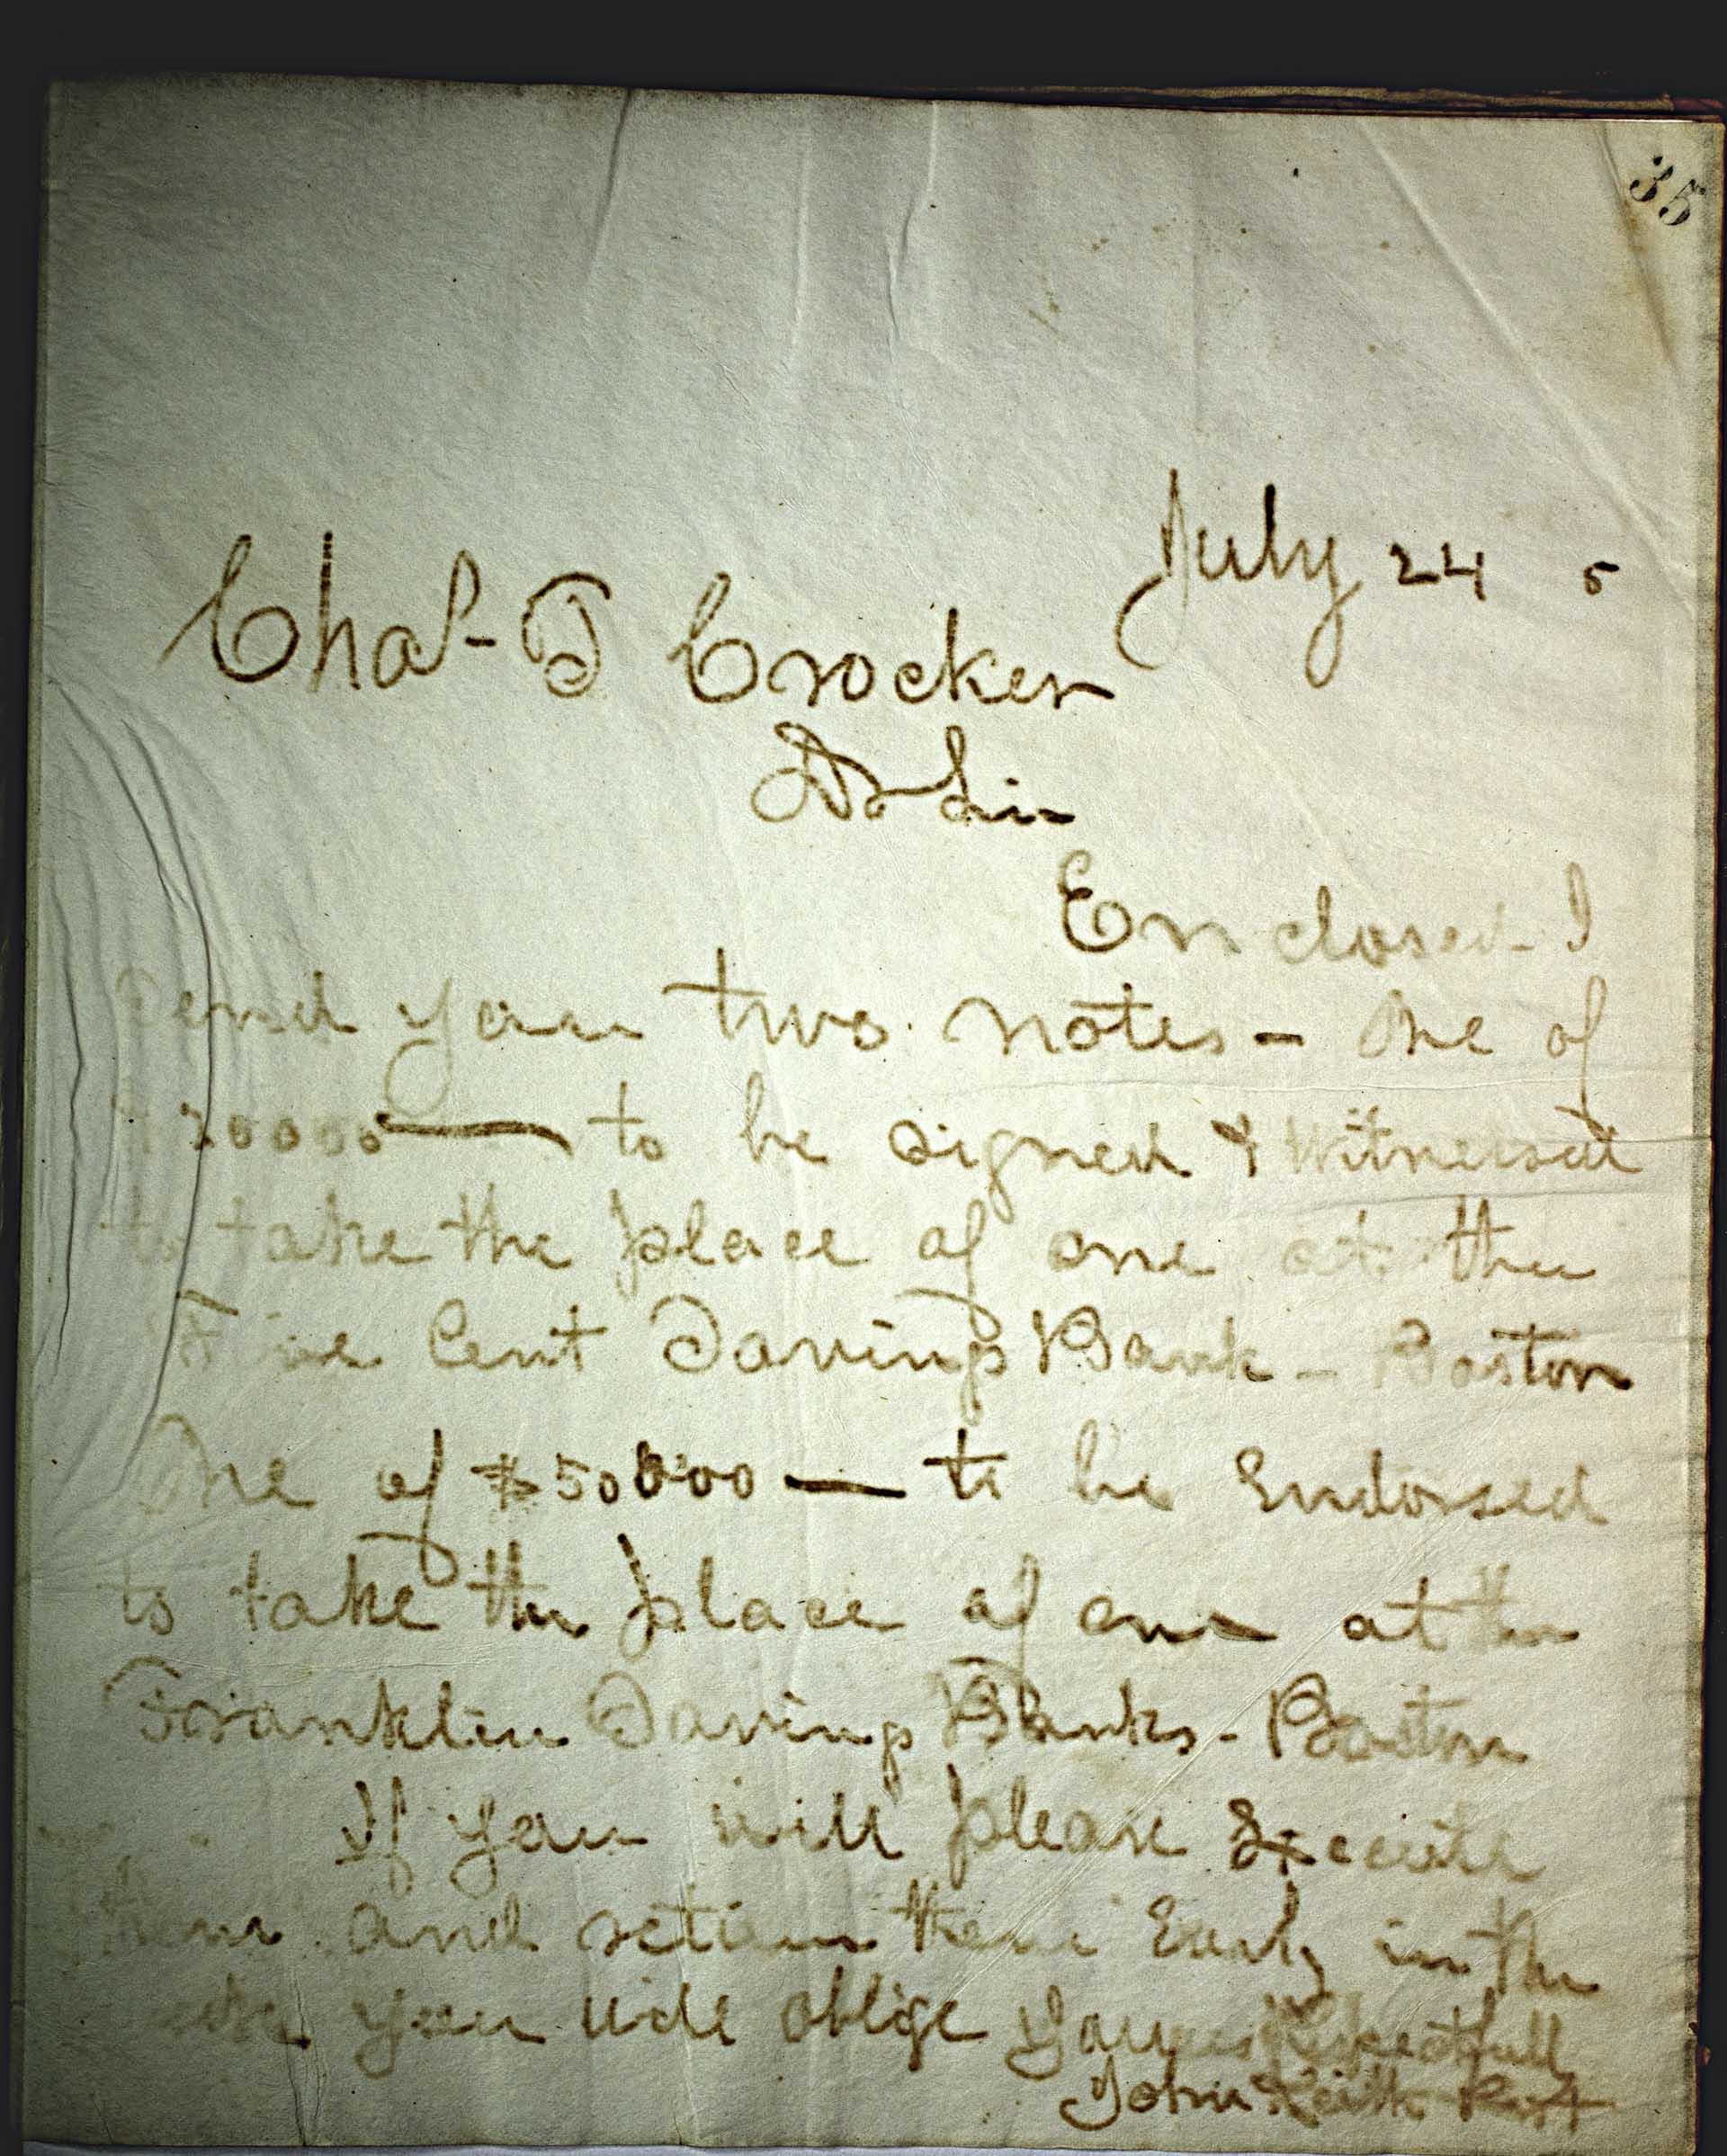 35
July 24 5
Chas- T Crocker
Dr Sir
Enclosed I
Send you two notes - One of
$20000 — to be signed & Witnessed
to take the place of one at the
Five Cent Savings Bank - Boston
One of $50000 — to be Endorsed
to take the place of one at the
Franklin Savings Banks - Boston
If you will please Execute
and return them Early in the
you will oblige Yours Respectfull
John Keith